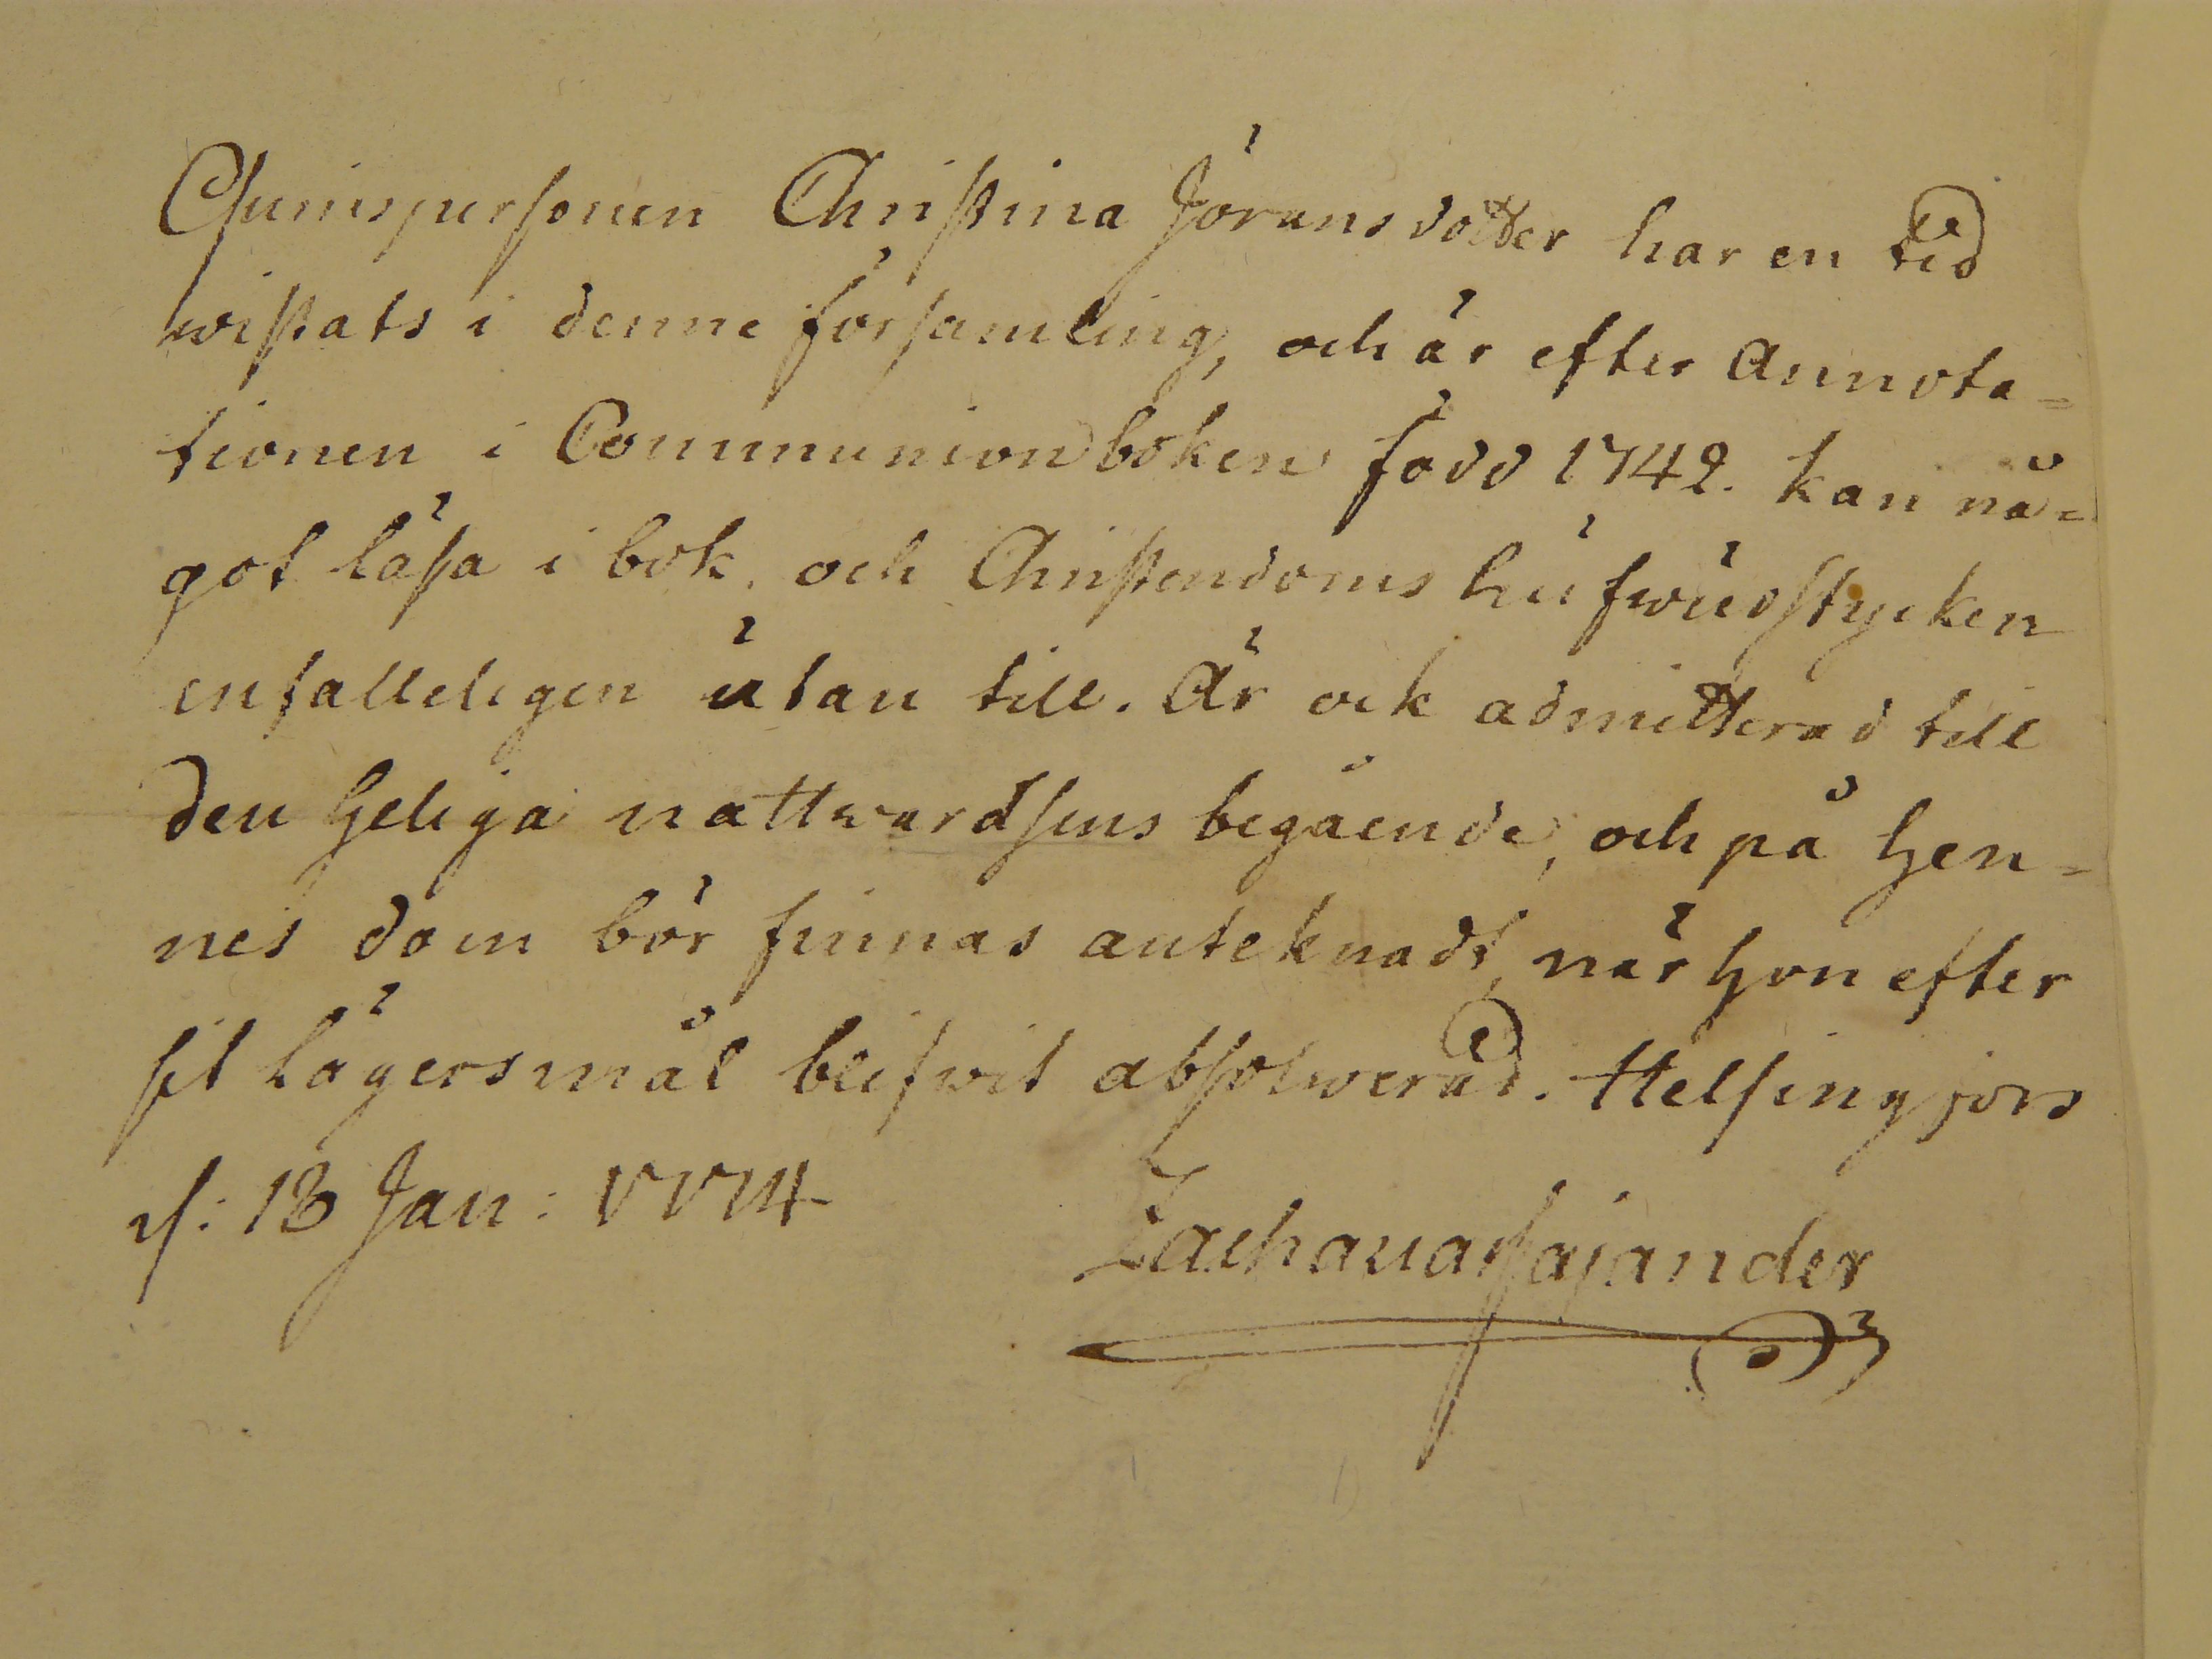 Qwinspersonen Christina Jöransdotter har en tid
wistats i denne församling, och är efter Annota=
tionen i Communionboken född 1742. kan nå=
got läsa i bok, och Christendoms hufwudstycken
enfalleligen utan till. Är ock admitterad till
den heliga nattwardsens begående, och på hen=
nes dom bör finnas anteknadt, när hon efter
sit lägersmål blifwit absolwerad. Helsingfors
d: 13 Jan: 1774
Zacharias Cajander